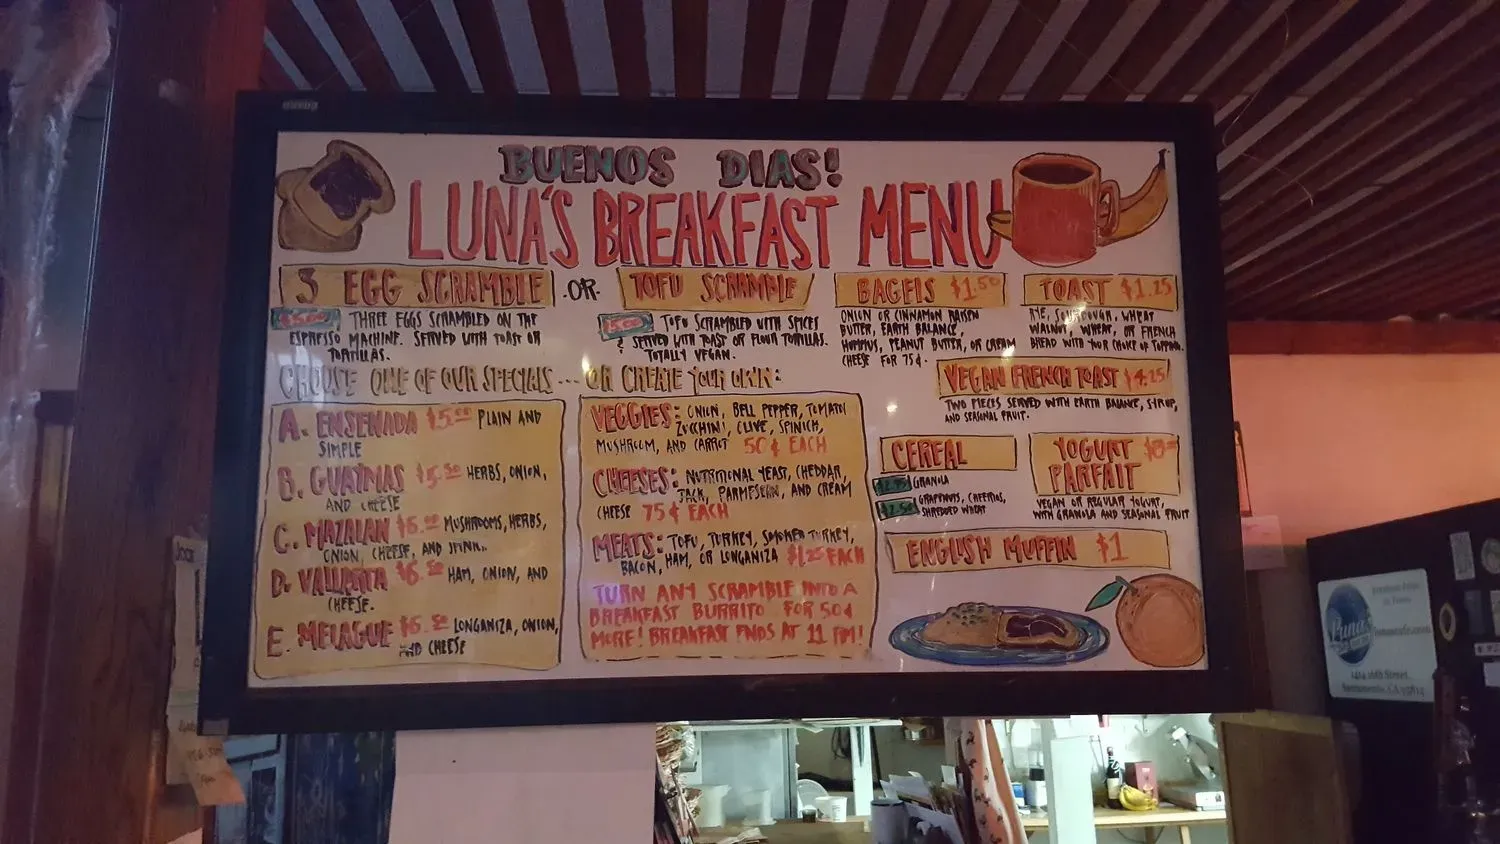 BUENOS DIAS!
LUNA'S BREAKFAST MENU
3 EGG SCRAMBLE
$5.00 THREE EGGS SCRAMBLED ON THE
ESPRESSO MACHINE. SERVED WITH TOAST OR
TORTILLAS.
-OR-
TOFU SCRAMBLE
$5.00 TOFU SCRAMBLED WITH SPICES
& SERVED WITH TOAST OR FLOUR TORTILLAS.
TOTALLY VEGAN.
BAGELS $1.50
ONION OR CINNAMON RAISEN
BUTTER, EARTH BALANCE,
HUMMUS, PEANUT BUTTER, OR CREAM
CHEESE FOR 75¢.
TOAST $1.25
RYE, SOURDOUGH, WHEAT
WALNUT, WHEAT, OR FRENCH
BREAD WITH YOUR CHOICE OF TOPPING.
CHOOSE ONE OF OUR SPECIALS... OR CREATE YOUR OWN:
A. ENSENADA $5.00 PLAIN AND
SIMPLE
B. GUAYMAS $5.50 HERBS, ONION,
AND CHEESE
C. MAZALAN $6.00 MUSHROOMS, HERBS,
ONION, CHEESE, AND SPINK.
D. VALLARTA $6.50 HAM, ONION, AND
CHEESE.
E. MELAGUE $6.50 LONGANIZA, ONION,
AND CHEESE
VEGGIES: ONION, BELL PEPPER, TOMATO
ZUCCHINI, OLIVE, SPINICH,
MUSHROOM, AND CARROT 50¢ EACH
CHEESES: NUTRITIONAL YEAST, CHEDDAR,
JACK, PARMESEAN, AND CREAM
CHEESE 75¢ EACH
MEATS: TOFU, TURKEY, SMOKED TURKEY,
BACON, HAM, OR LONGANIZA $1.25 EACH
TURN ANY SCRAMBLE INTO A
BREAKFAST BURRITO FOR 50¢
MORE! BREAKFAST ENDS AT 11 PM!
VEGAN FRENCH TOAST $4.25
TWO PIECES SERVED WITH EARTH BALANCE, SYRUP,
AND SEASONAL FRUIT.
CEREAL
$2.95 GRANOLA
$2.50 GRAPENUTS, CHEERIOS,
SHREDDED WHEAT
YOGURT
PARFAIT
VEGAN OR REGULAR YOGURT,
WITH GRANOLA AND SEASONAL FRUIT
ENGLISH MUFFIN $1
Luna's
lunascafe.com
1414 16th Street,
Sacramento, CA 95814